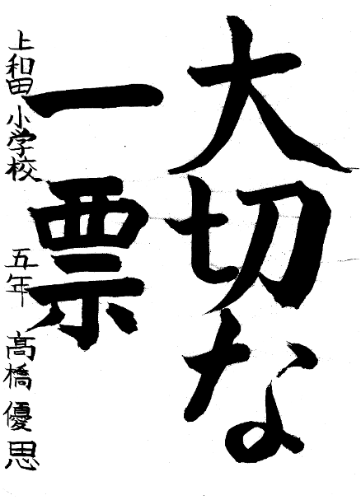 大切な
一票
上和田小学校 五年 高橋優思